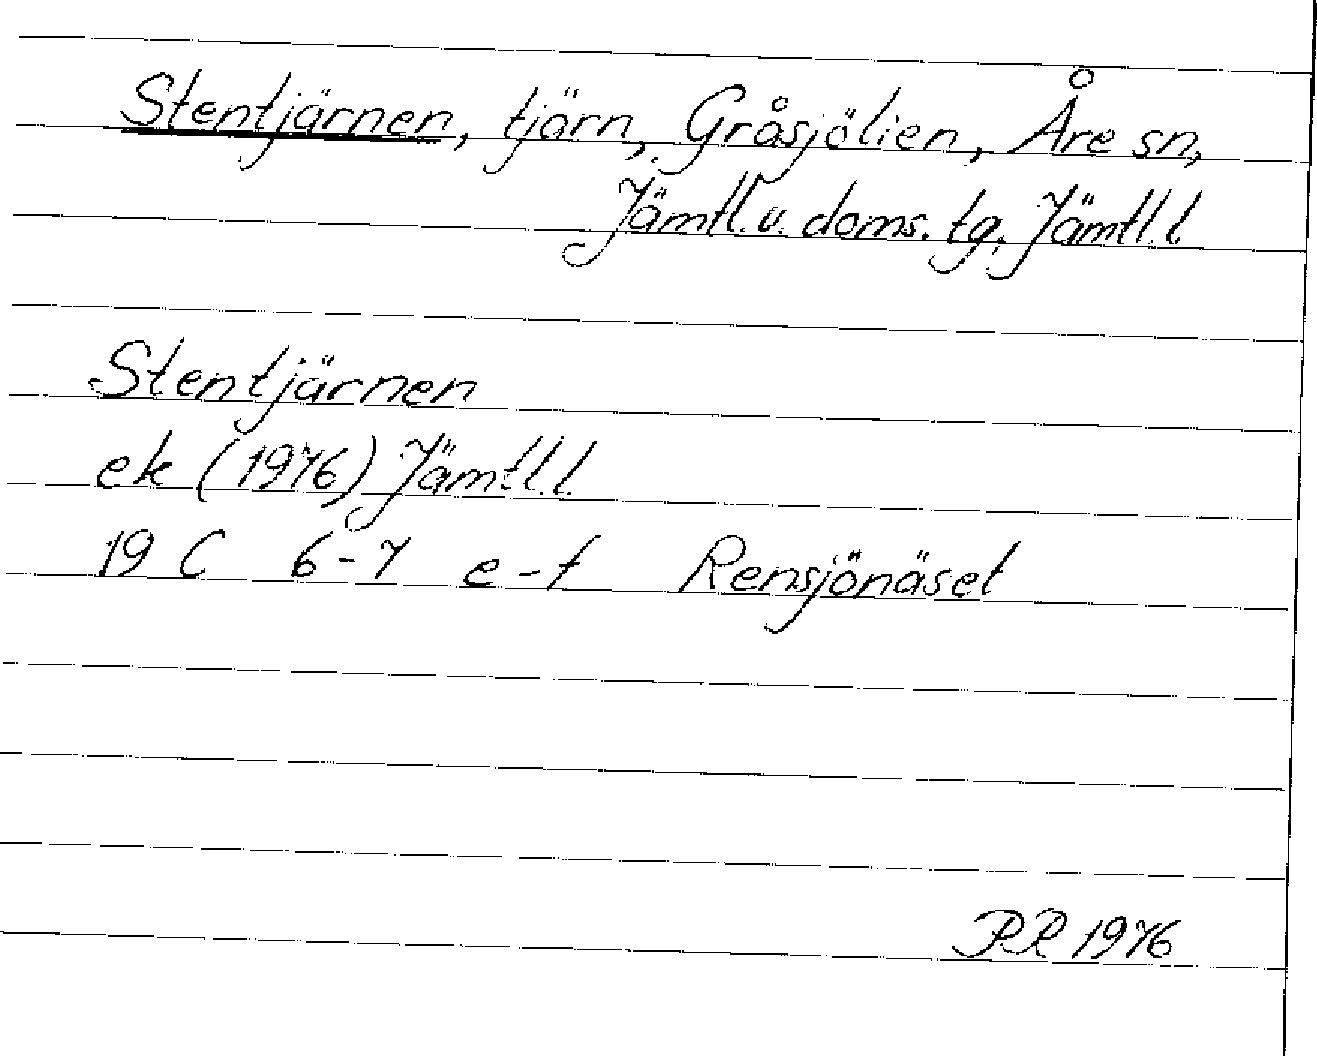 Stentjärnen, tjärn, Gråsjölien, Åre sn,
Jämtl. v. doms. tg. Jämtl. l.
Stentjärnen
ek (1976) Jämtl. l.
19 C 6-7 e-f Rensjönäset
RR 1976